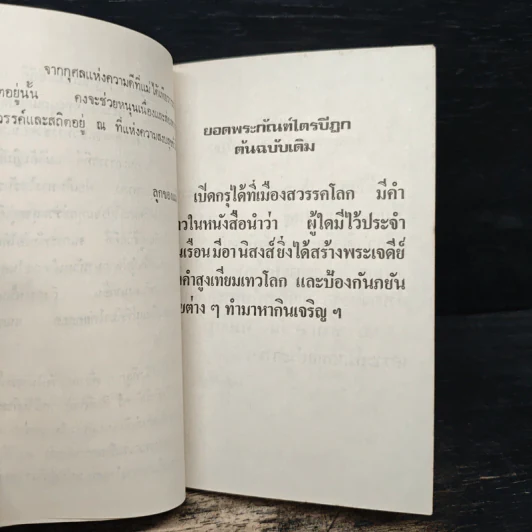 จากกุศลแห่งความดีที่แม่ได้
อยู่นั้น คงจะช่วยหนุนเนื่อง
และสถิตอยู่ ณ ที่แห่งความ
ยอดพระกัณฑ์ไตรปิฎก
ต้นฉบับเดิม
เปิดกรุได้ที่เมืองสวรรคโลก มีคำ
ในหนังสือนำว่า ผู้ใดมีไว้ประจำ
เรือนมีอานิสงส์ยิ่งได้สร้างพระเจดีย์
คำสูงเทียมเทวโลก และป้องกันภยัน
ต่าง ๆ ทำมาหากินเจริญ ๆ